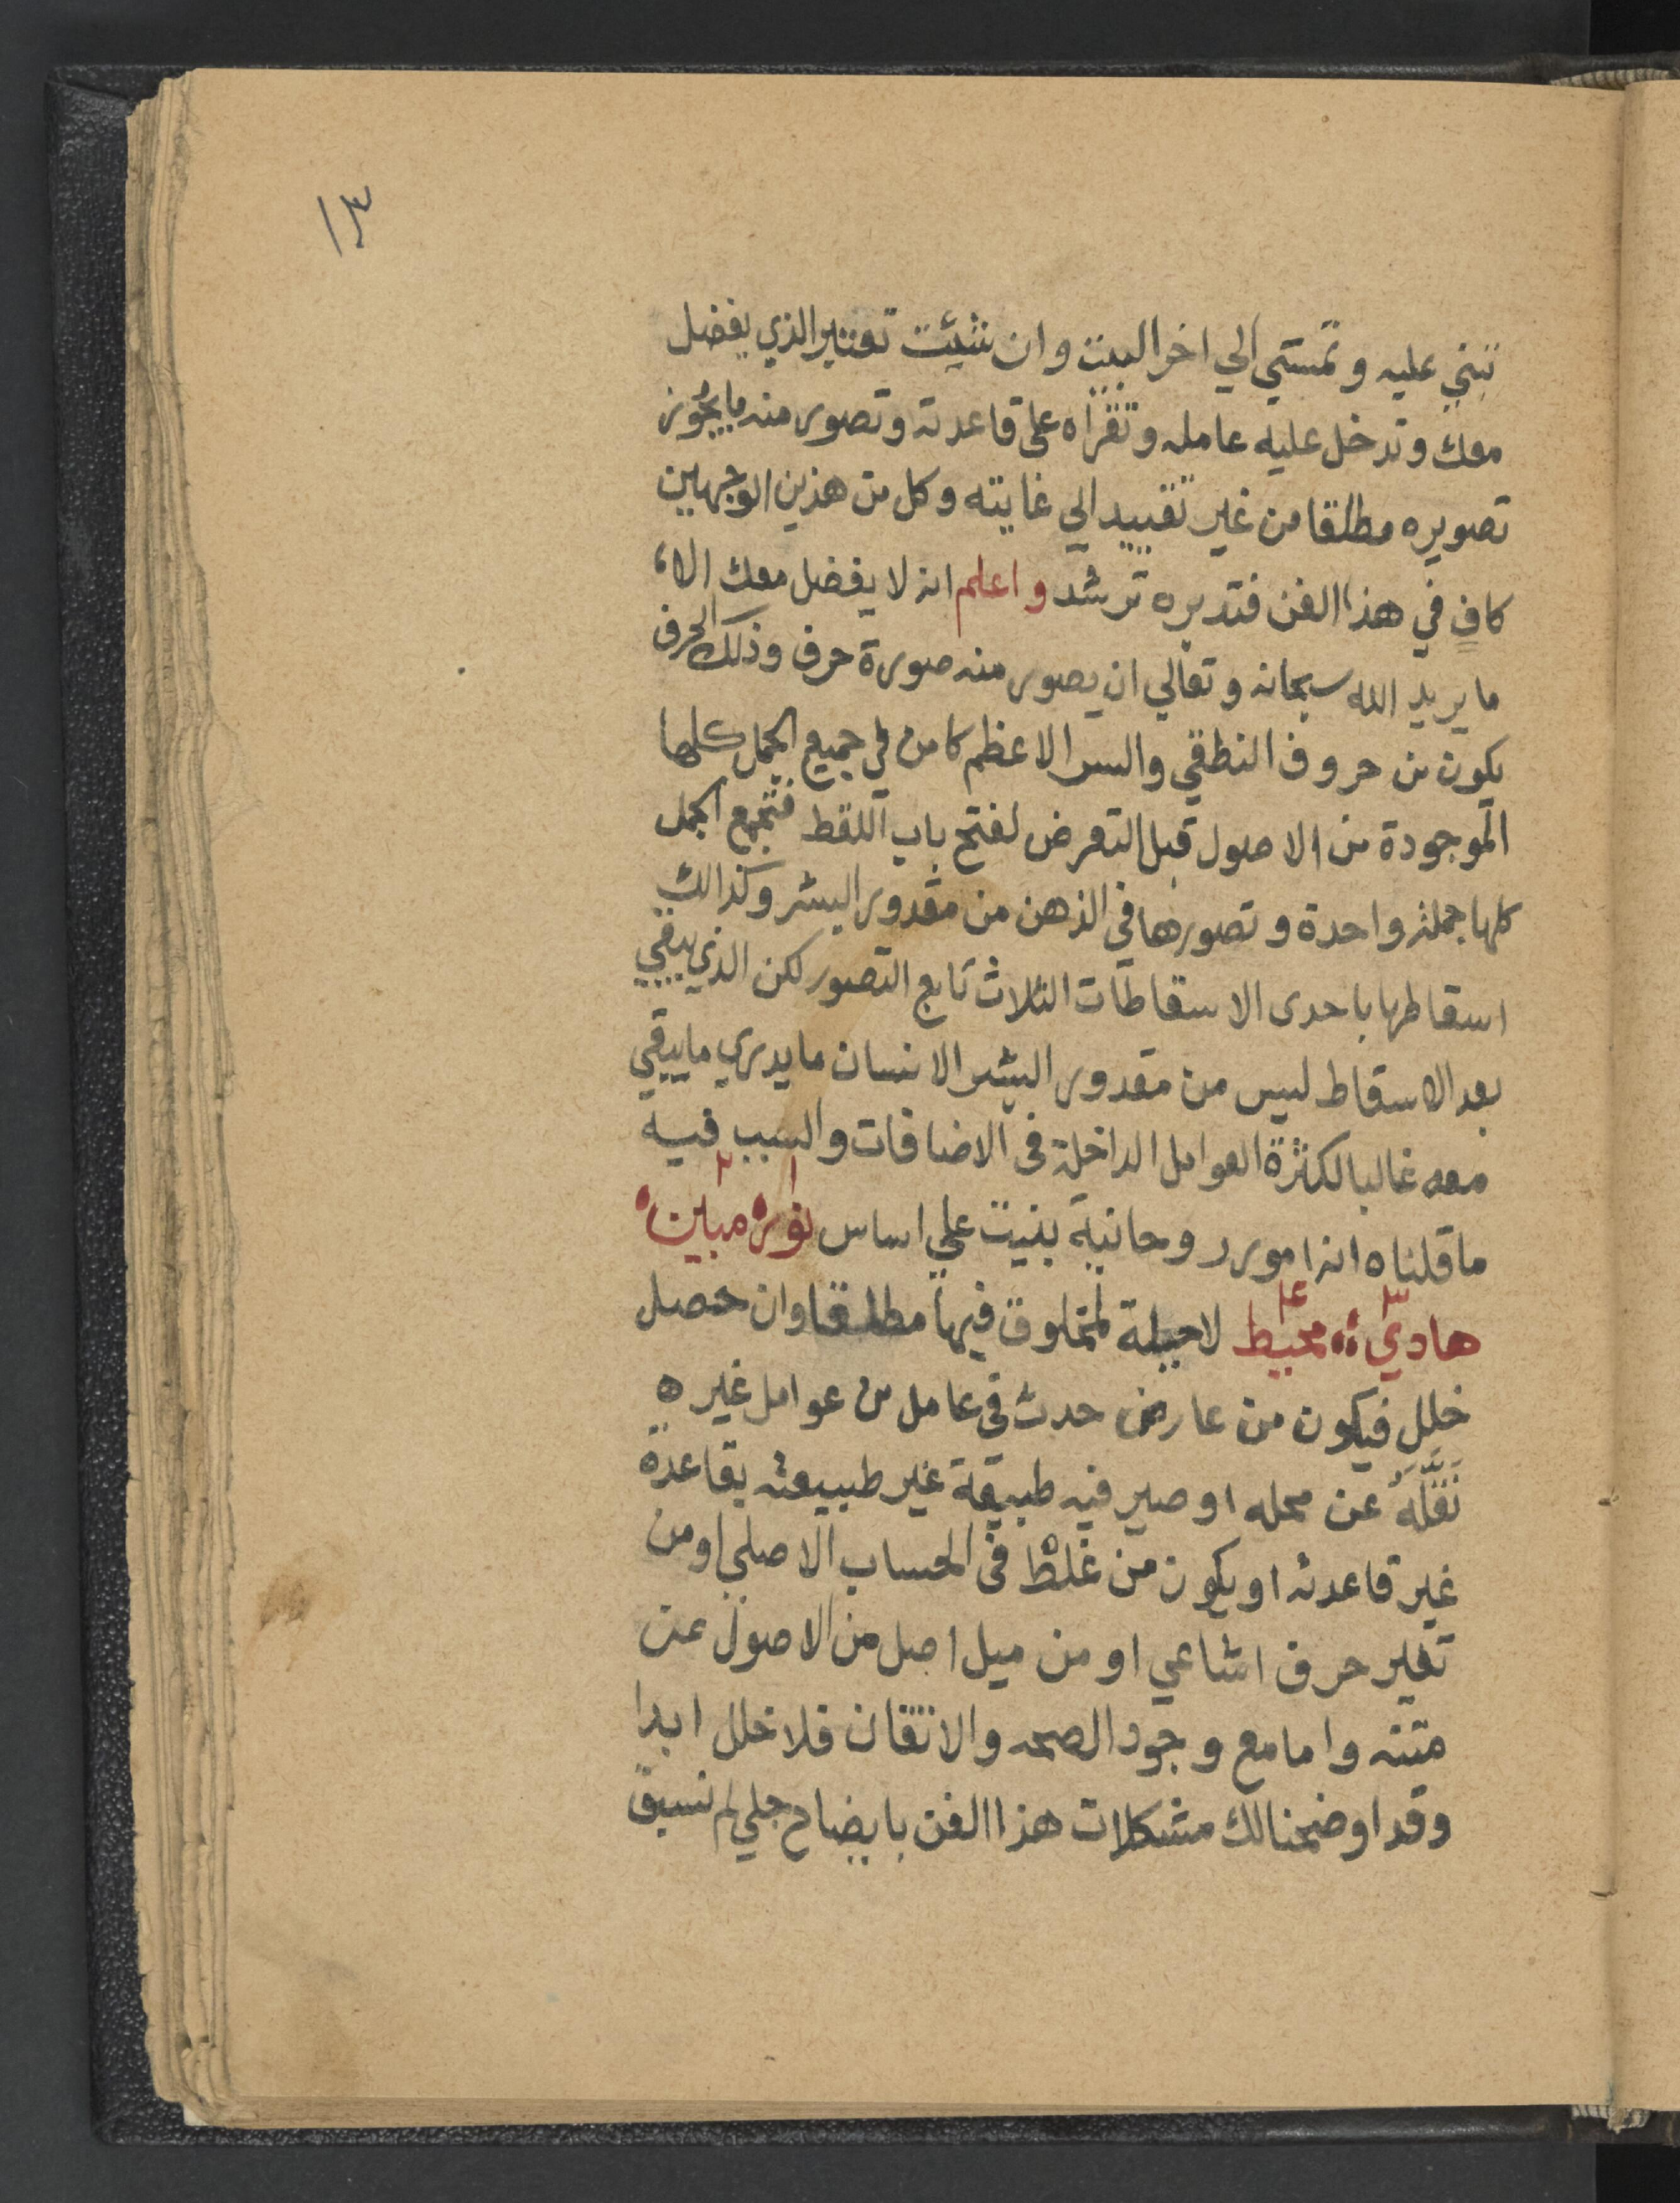 ١٣
تبني عليه وتمشي الي اخر البيت وان شيئت تعتبر الذي يفضل
معك وتدخل عليه عامله وتقراه على قاعدته وتصور منه ما يجُوز
تصويره مطلقا من غير تقييد الي غايته وكل من هذين الوجهين
كافٍ في هذا الفن فتدبره ترشد واعلم انه لا يفضل معك الا
ما يريد الله سبحانه وتعالي ان يصور منه صورة حرف وذلك الحرف
يكون من حروف النطقي والسر الاعظم كامن في جميع الجمل كلها
الموجودة من الاصول قبل التعرض لفتح باب اللقط فتجمع الجمل
كلها جملة واحدة وتصورها في الذهن من مقدور البشر وكذالك
اسقاطها باحدى الاسقاطات الثلاث تابع التصور لكن الذي يبقي
بعد الاسقاط ليس من مقدور البشر الانسان ما يدري ما يبقي
معه غالبا لكثرة العوامل الداخلة في الاضافات والسبب فيه
ما قلناه انه امور روحانية بنيت علي اساس نور ١ مبين ٢
هادي ٣ محيط ٤ لا حيلة لمخلوق فيها مطلقا وان حصل
خلل فيكون من عارض حدث في عامل من عوامل غيره
نَقَّلَهُ عن محله او صير فيه طبيعة غير طبيعته بقاعدة
غير قاعدته او يكون من غلط في الحساب الاصلي او من
تغير حرف اشاعي او من ميل اصل من الاصول عن
متنه واما مع وجود الصحه والاتقان فلا خلل ابدا
وقد اوضحنا لك مشكلات هذا الفن بايضاح جلي لم نسبق